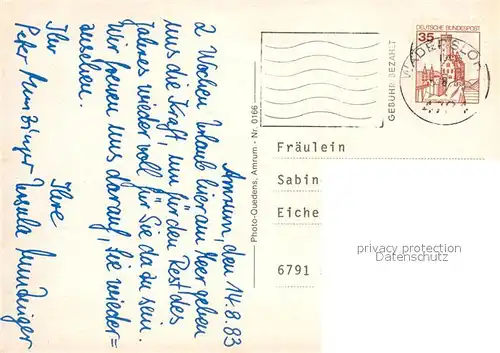 Amrum, den 14.8.83
2 Wochen Urlaub hier am Meer geben
uns die Kraft, um für den Rest des
Jahres wieder voll für Sie da zu sein.
Wir freuen uns darauf, Sie wieder=
zusehen.
Ihr Ihre
Peter Munzinger Ursula Munzinger
Photo-Quedens, Amrum - Nr. 0166
GEBÜHR BEZAHLT
DEUTSCHE BUNDESPOST
35
WADERSLOH
Fräulein
Sabin
Eiche
6791
privacy protection
Datenschutz